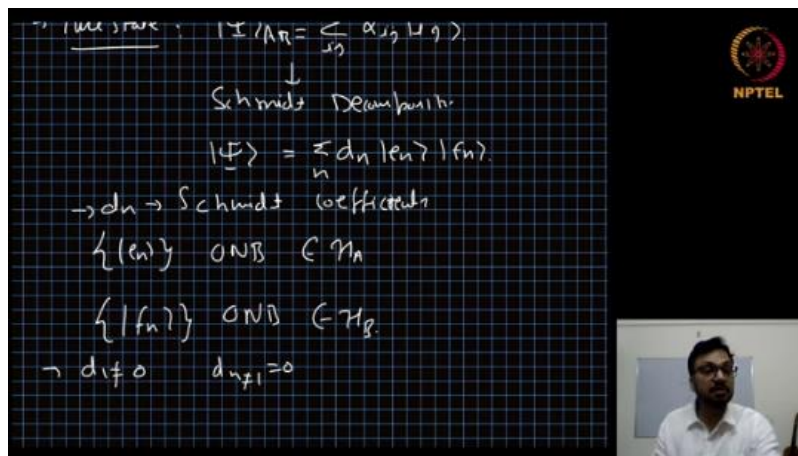 → Pure state : |Ψ⟩AB = Σij αij |i j⟩.
↓
Schmidt Decomposith.
|Ψ⟩ = Σn dn |en⟩ |fn⟩.
→ dn → Schmidt coefficients
{|en⟩} ONB ∈ HA
{|fn⟩} ONB ∈ HB.
→ d1≠0 dn≠1=0
NPTEL